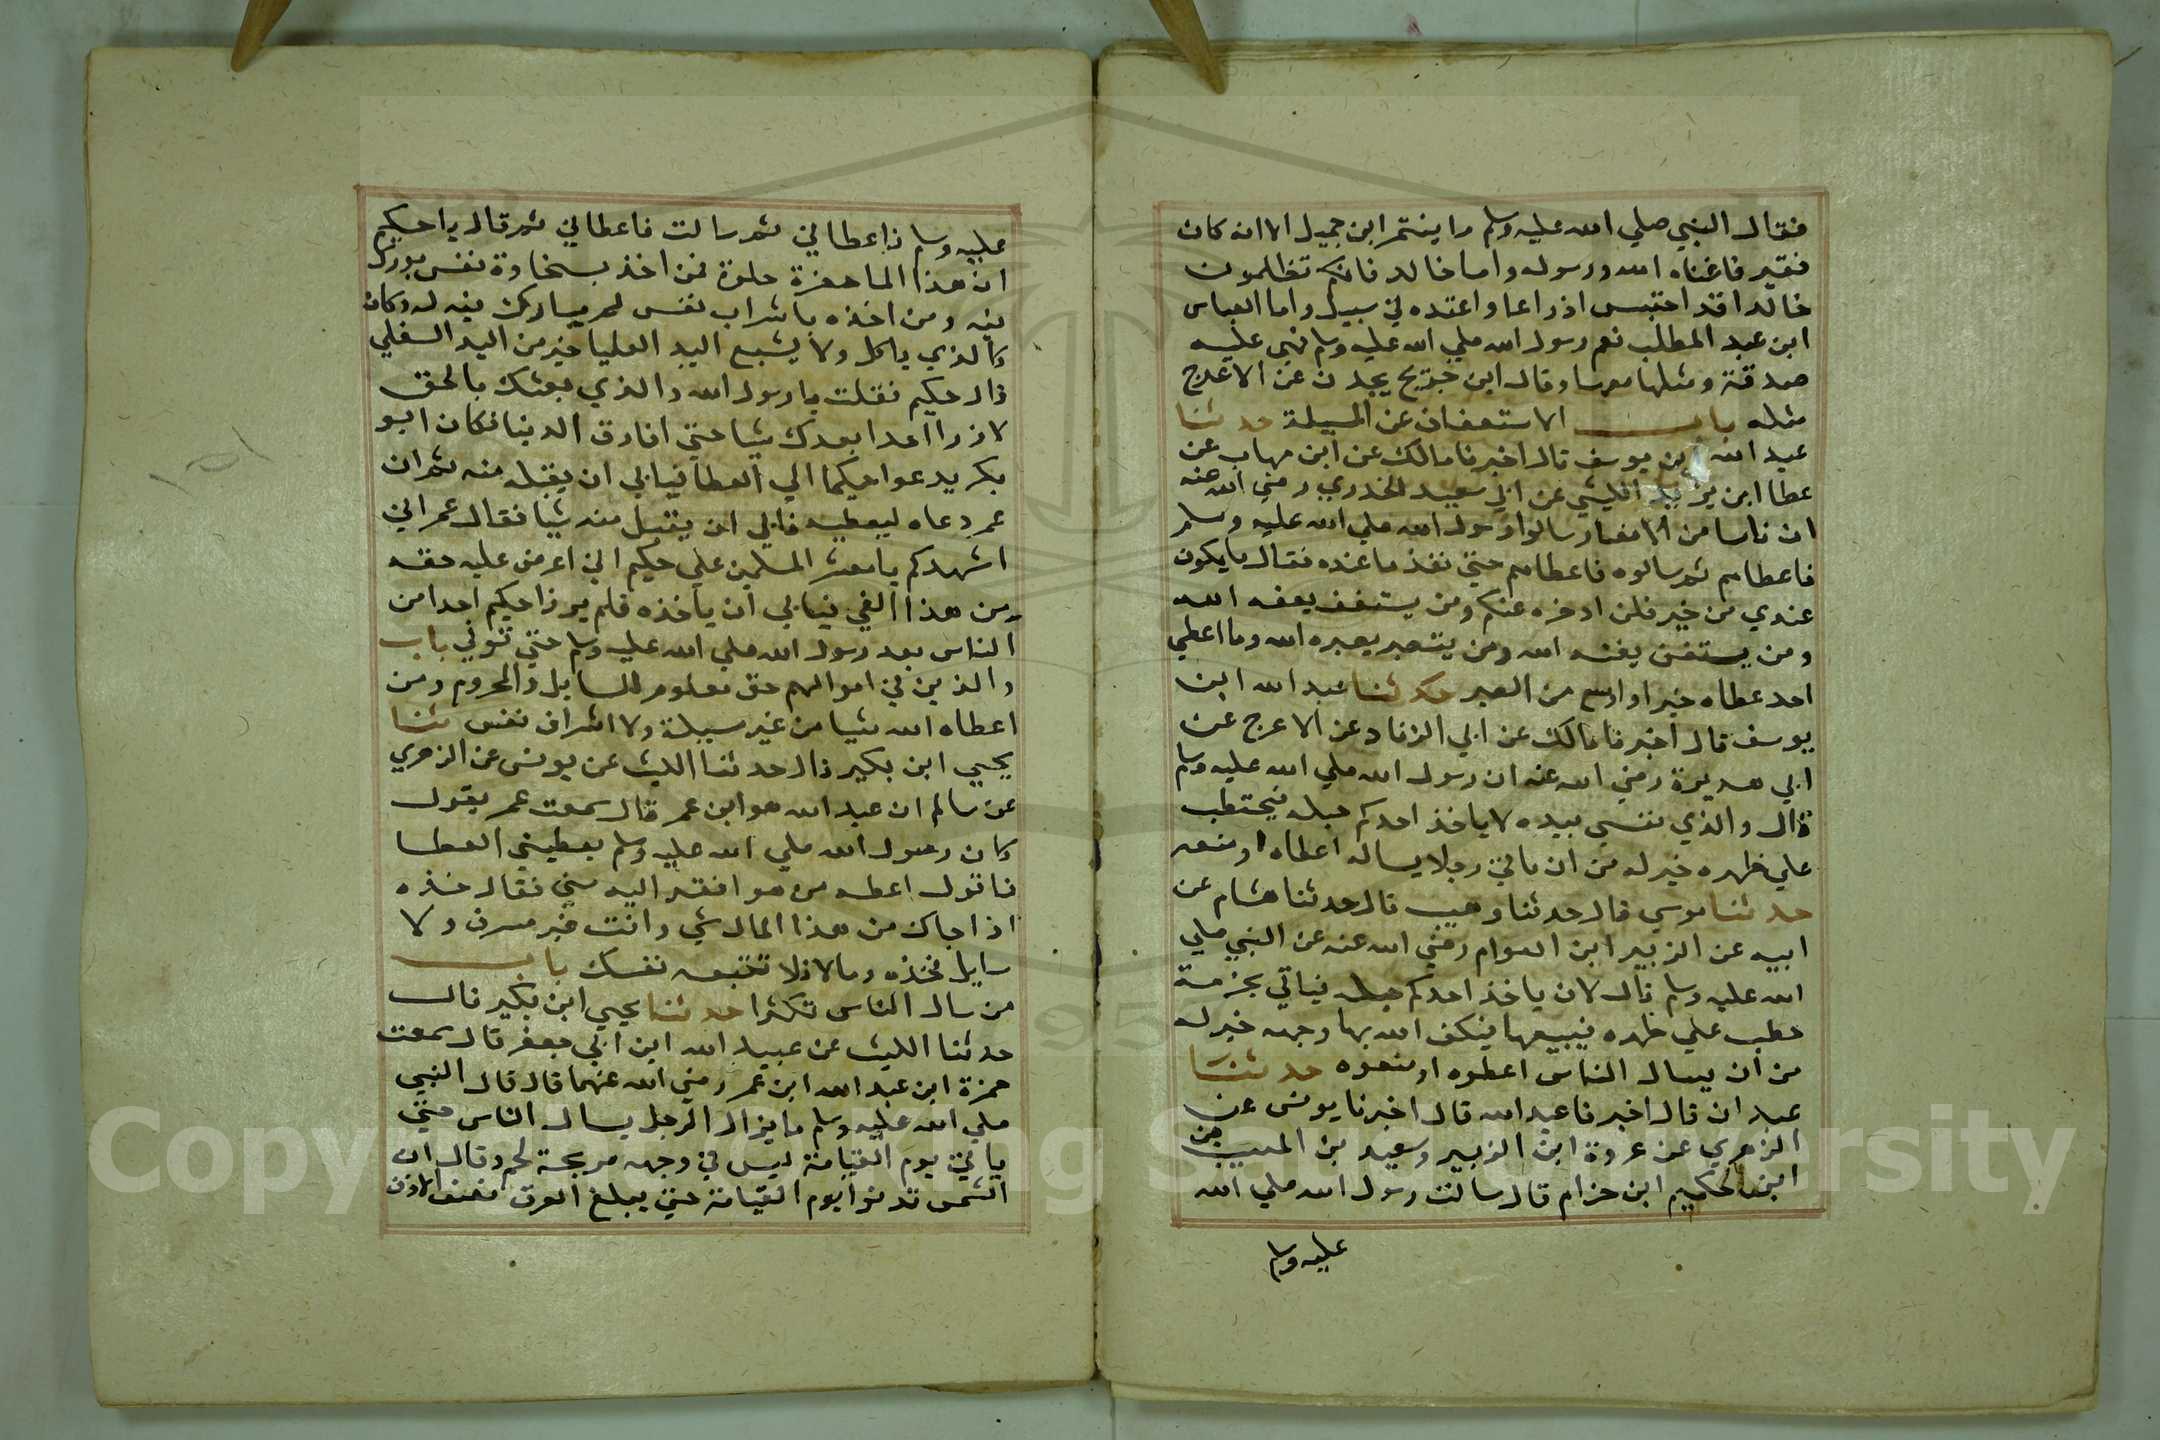 فقال النبي صلي الله عليه وسلم ما ينتقم ابن جميل الا انه كان
فقير فاغناه الله ورسوله واما خالد فانكم تظلمون
خالدا قد احتبس اذراعا واعتده في سبيل واما العباس
ابن عبد المطلب نعم رسول الله صلي الله عليه وسلم فهي عليه
صدقة ومثلها معها وقال ابن جريج يحدث عن الاعرج
مثله باب الاستعفاف عن المسيلة حدثنا
عبد الله ابن يوسف قال اخبرنا مالك عن ابن شهاب عن
عطا ابن يزيد الليثي عن ابي سعيد الخدري رضي الله عنه
ان ناسا من الانصار سالوا رسول الله صلي الله عليه وسلم
فاعطاهم ثم سالوه فاعطاهم حتي نفذ ما عنده فقال ما يكون
عندي من خير فلن ادخره عنكم ومن يستعفف يعفه الله
ومن يستغن يغنه الله ومن يتصبر يصبره الله وما اعطي
احد عطاه خيرا واوسع من الصبر حدثنا عبد الله ابن
يوسف قال اخبرنا مالك عن ابي الزناد عن الاعرج عن
ابي هريرة رضي الله عنه ان رسول الله صلي الله عليه وسلم
قال والذي نفسي بيده لا ياخذ احدكم حبله فيحتطب
علي ظهره خير له من ان ياتي رجلا يساله اعطاه او منعه
حدثنا موسي قال حدثنا وهيب قال حدثنا هشام عن
ابيه عن الزبير ابن العوام رضي الله عنه عن النبي صلي
الله عليه وسلم قال لان ياخذ احدكم حبله فياتي بحزمة
حطب علي ظهره فيبيعها فيكف الله بها وجهه خير له
من ان يسال الناس اعطوه او منعوه حدثنا
عبدان قال اخبرنا عبد الله قال اخبرنا يونس عن
الزهري عن عروة ابن الزبير وسعيد بن المسيب عن
ابن حكيم ابن حزام قال سالت رسول الله صلي الله
عليه وسلم
عليه وسلم فاعطاني ثم سالت فاعطاني ثم قال يا حكيم
ان هذا الما حضرة حلوة فمن اخذ بسخاوة نفس بورك
فيه ومن اخذه باشراب نفس لم يبارك فيه له وكان
كالذي ياكل ولا يشبع اليد العليا خير من اليد السفلي
قال حكيم فقلت يا رسول الله والذي بعثك بالحق
لا ارزا احدا بعدك شيا حتي افارق الدنيا فكان ابو
بكر يدعوا حيكما الي العطا فيابي ان يقبله منه ثم ان
عمر دعاه ليعطيه فابي ان يقبل منه شيا فقال عمر اني
اشهدكم يا معشر المسلمين علي حيكم اني اعرض عليه حقه
من هذا الفي فيابي ان ياخذه فلم يرزا حيكم احدا من
الناس بعد رسول الله صلي الله عليه وسلم حتي توفي باب
والذين في اموالهم حق معلوم للسايل والمحروم ومن
اعطاه الله شيا من غير سيبلة ولا اشراف نفس ثنا
يحيي ابن بكير قال حدثنا الليث عن يونس عن الزهري
عن سالم ان عبد الله هو ابن عمر قال سمعت عمر يقول
كان رسول الله صلي الله عليه وسلم يعطيني العطا
فاقول اعطه من هو افقر اليه مني فقال خذه
اذا جاك من هذا المال شي وانت غير مسرف ولا
سايل فخذه وما لا فلا تتبعه نفسك باب
من سال الناس تكثرا حدثنا يحيي ابن بكير قال
حدثنا الليث عن عبيد الله ابن ابي جعفر قال سمعت
حمزة ابن عبد الله ابن عمر رضي الله عنهما قال قال النبي
صلي الله عليه وسلم ما يزال الرجل يسال الناس حتي
ياتي يوم القيامة ليس في وجهه مربجة لحم وقال ان
الشمس تدنوا يوم القيامة حتي يبلغ العرق نصف الاذن
Copyright © King Saud University